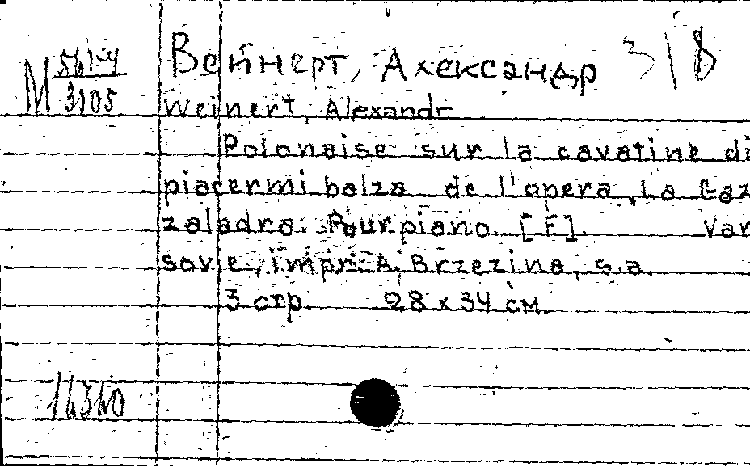 М 5615-4
3105
Вейнерт, Александр 3 | 8
Weinert, Alexandr
Polonaise sur la cavatine di
piacermi balza de l'opera "La Gaz
zaladra. Pour piano. [F]. Var
sovie, impr. A. Brzezina, s.a.
3 стр. 28 x 34 см.
16340